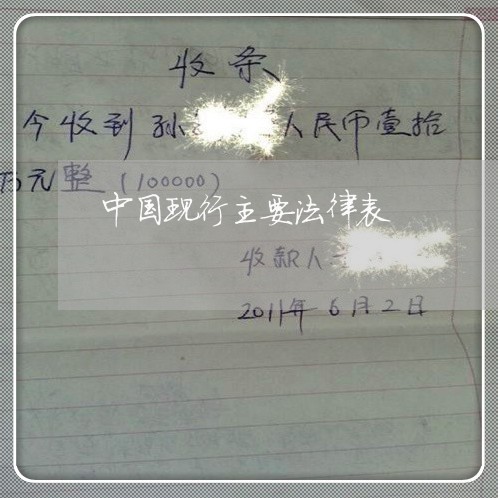 收条
今收到孙 人民币壹拾
万元整(100000)
中国现行主要法律表
收款人
2011年6月2日